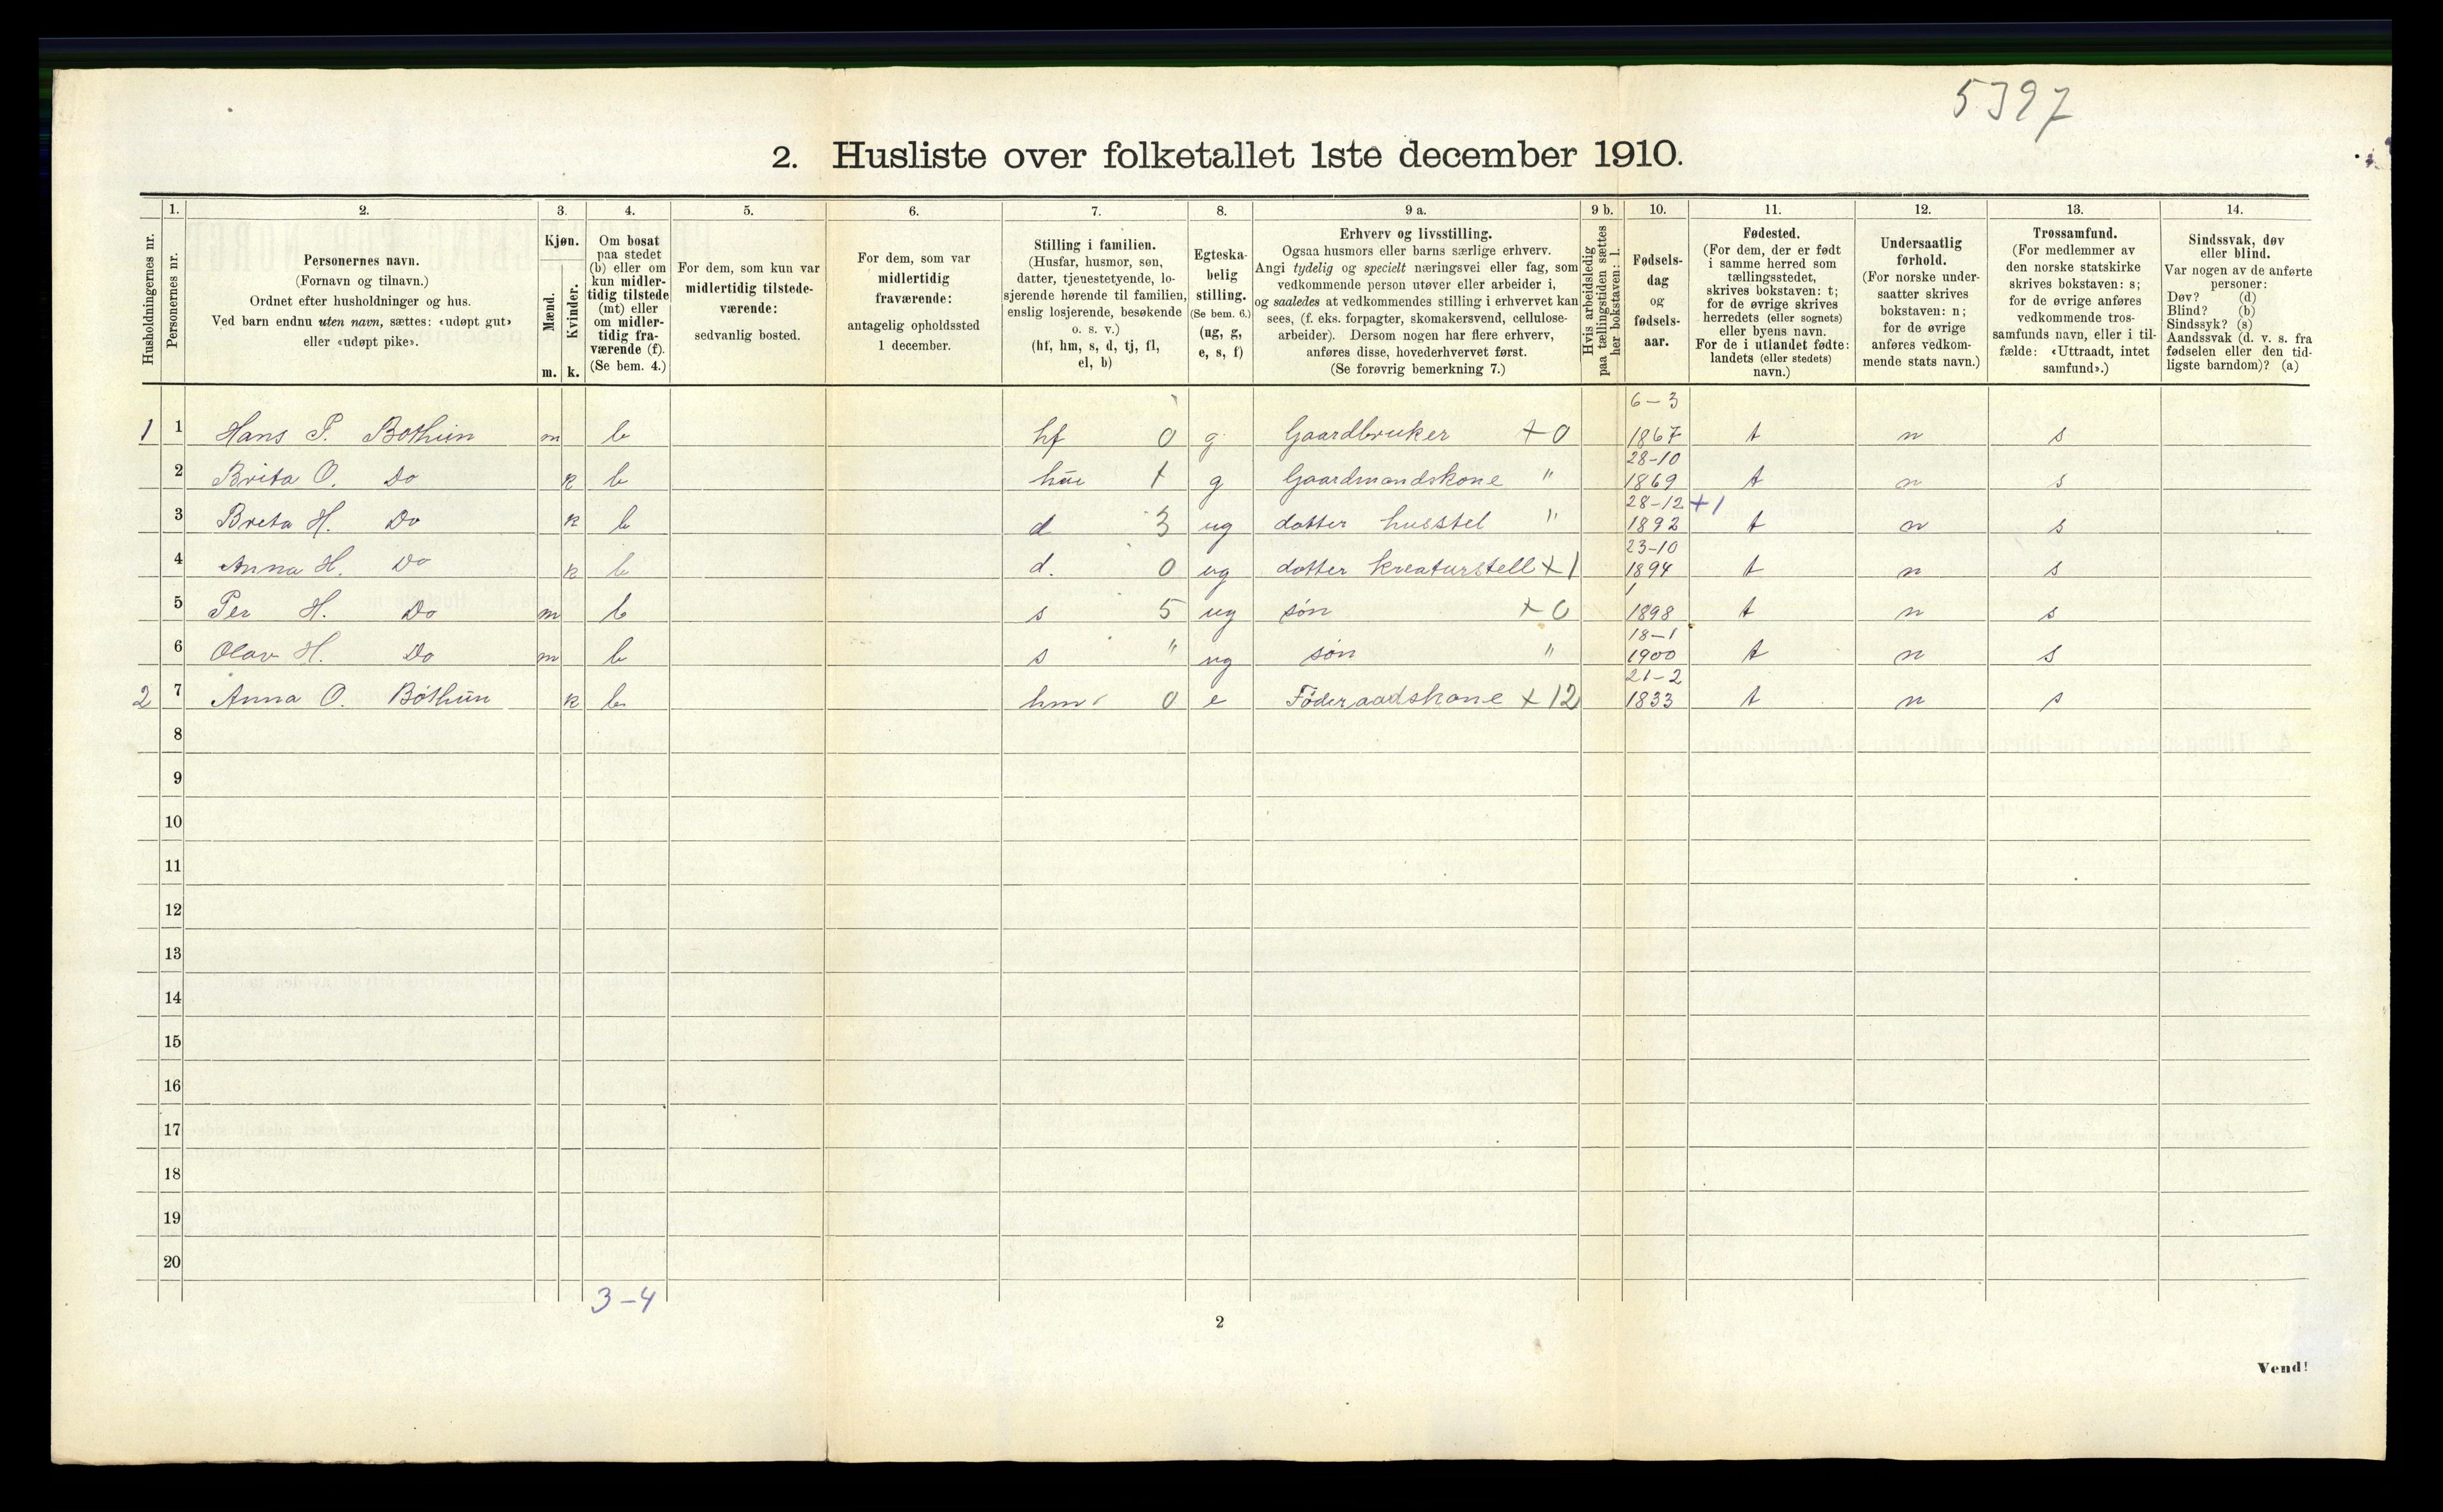 5397
2. Husliste over folketallet 1ste december 1910.
Husholdningernes nr.
1.
Personernes nr.
2.
Personernes navn.
(Fornavn og tilnavn.)
Ordnet efter husholdninger og hus.
Ved barn endnu uten navn, sættes: «udøpt gut»
eller «udøpt pike».
3.
Kjøn.
Mænd.
Kvinder.
m. k.
4.
Om bosat
paa stedet
(b) eller om
kun midler-
tidig tilstede
(mt) eller
om midler-
tidig fra-
værende (f).
(Se bem. 4.)
5.
For dem, som kun var
midlertidig tilstede-
værende:
sedvanlig bosted.
6.
For dem, som var
midlertidig
fraværende:
antagelig opholdssted
1 december.
7.
Stilling i familien.
(Husfar, husmor, søn,
datter, tjenestetyende, lo-
sjerende hørende til familien,
enslig losjerende, besøkende
o. s. v.)
(hf, hm, s, d, tj, fl,
el, b)
8.
Egteska-
belig
stilling.
(Se bem. 6.)
(ug, g,
e, s, f)
9 a.
Erhverv og livsstilling.
Ogsaa husmors eller barns særlige erhverv.
Angi tydelig og specielt næringsvei eller fag, som
vedkommende person utøver eller arbeider i,
og saaledes at vedkommendes stilling i erhvervet kan
sees, (f. eks. forpagter, skomakersvend, cellulose-
arbeider). Dersom nogen har flere erhverv,
anføres disse, hovederhvervet først.
(Se forøvrig bemerkning 7.)
9 b.
Hvis arbeidsledig
paa tællingstiden sættes
her bokstaven: l.
10.
Fødsels-
dag
og
fødsels-
aar.
11.
Fødested.
(For dem, der er født
i samme herred som
tællingsstedet,
skrives bokstaven: t;
for de øvrige skrives
herredets (eller sognets)
eller byens navn.
For de i utlandet fødte:
landets (eller stedets)
navn.)
12.
Undersaatlig
forhold.
(For norske under-
saatter skrives
bokstaven: n;
for de øvrige
anføres vedkom-
mende stats navn.)
13.
Trossamfund.
(For medlemmer av
den norske statskirke
skrives bokstaven: s;
for de øvrige anføres
vedkommende tros-
samfunds navn, eller i til-
fælde: «Uttraadt, intet
samfund».)
14.
Sindssvak, døv
eller blind.
Var nogen av de anførte
personer:
Døv? (d)
Blind? (b)
Sindssyk? (s)
Aandssvak (d. v. s. fra
fødselen eller den tid-
ligste barndom)? (a)
6-3
1 1 Hans P. Bothun m b hf 0 g Gaardbruker +0 1867 t n s
28-10
2 Brita O. Do k b 1 g Gaardmandskone " 1869 t n s
28-12 +1
3 Breta H. Do k b d 3 ug datter husstel " 1892 t n s
23-10
4 Anna H. Do k b d. 0 ug datter kreaturstell +1 1894 t n s
5 Per H. Do m b s 5 ug søn +0 1898 t n s
18-1
6 Olav H. Do m b s " ug søn " 1900 t n s
21-2
2 7 Anna O. Bothun k b hm 0 e Føderaadskone +12 1833 t n s
8
9
10
11
12
13
14
15
16
17
18
19
20
3-4
2
Vend!